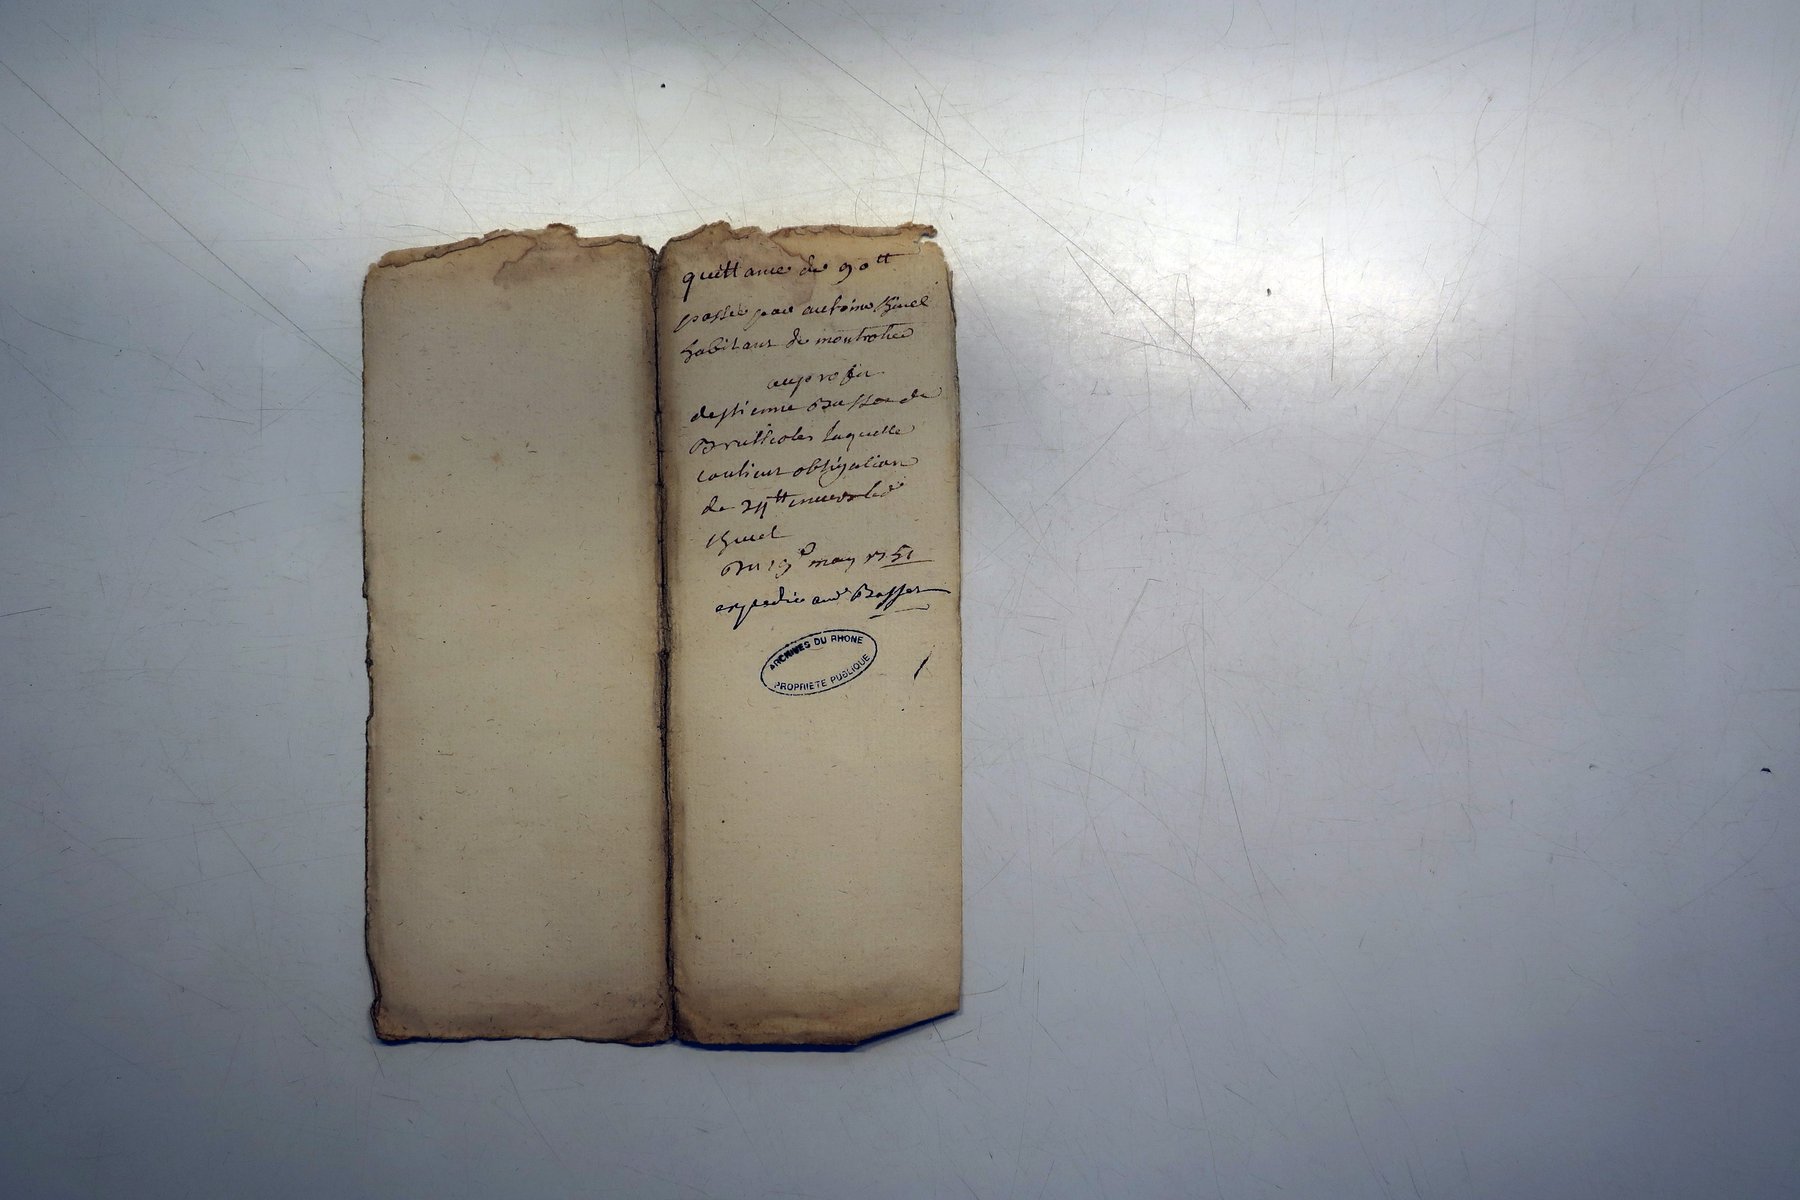 quittance de 90tt
passée par antoine
habitant de montrotier
au profit
destienne Basset de
Brullioles laquelle
contient obligation
de tt envers led

Du 19e may 1751
expediée aud Basset
ARCHIVES DU RHONE
PROPRIETE PUBLIQUE